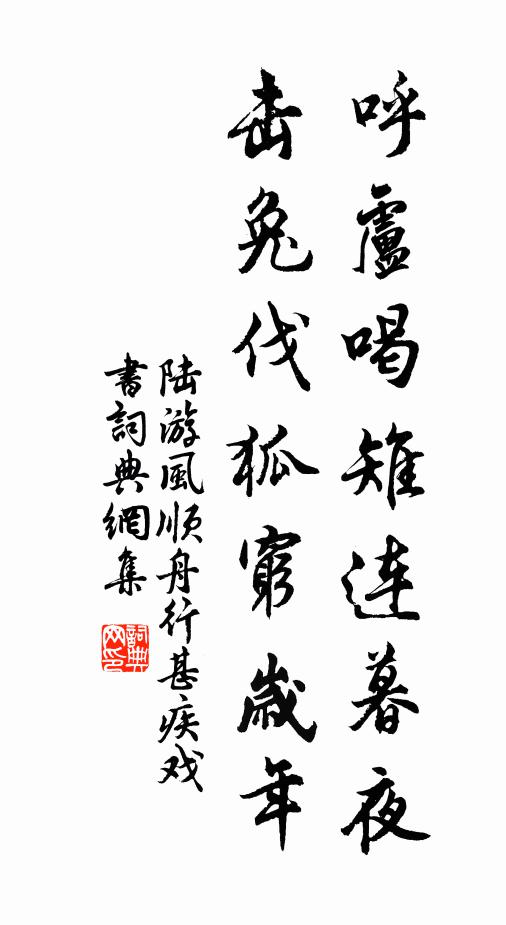 呼盧喝雉連暮夜
击兔伐狐窮歲年
陆游風順舟行甚疾戏
書詞典網集
詞典網印